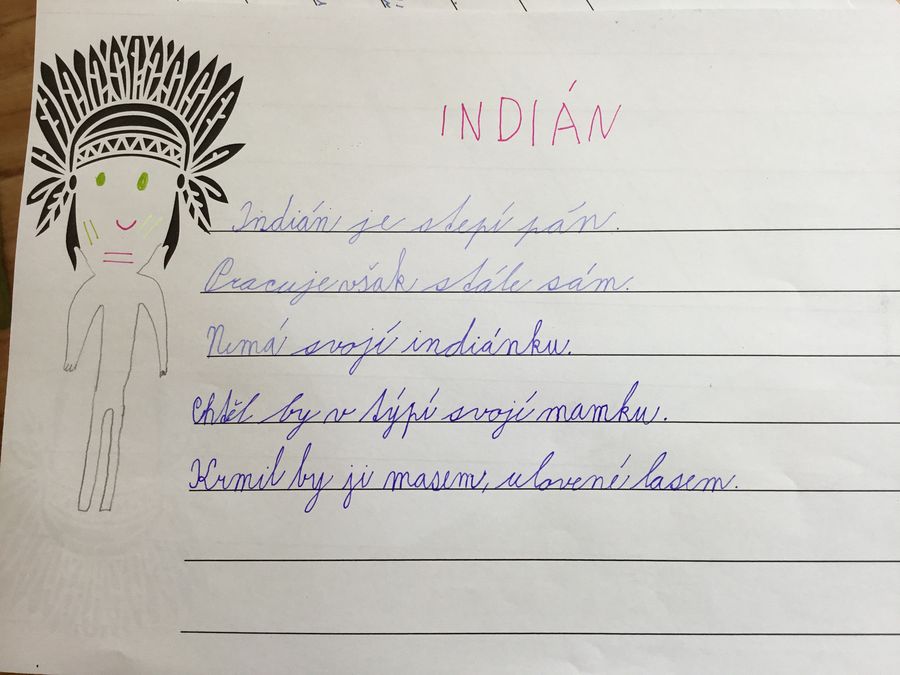 INDIÁN
Indián je stepí pán.
Pracuje však stále sám.
Nemá svojí indiánku.
Chtěl by v týpí svojí mamku.
Krmil by ji masem, ulovené lasem.